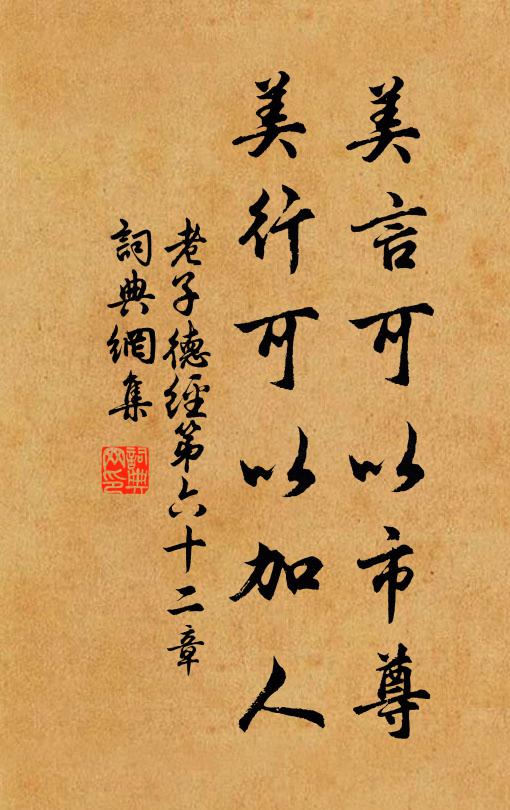 美言可以市尊
美行可以加人
老子德經第六十二章
詞典網集
詞典網印